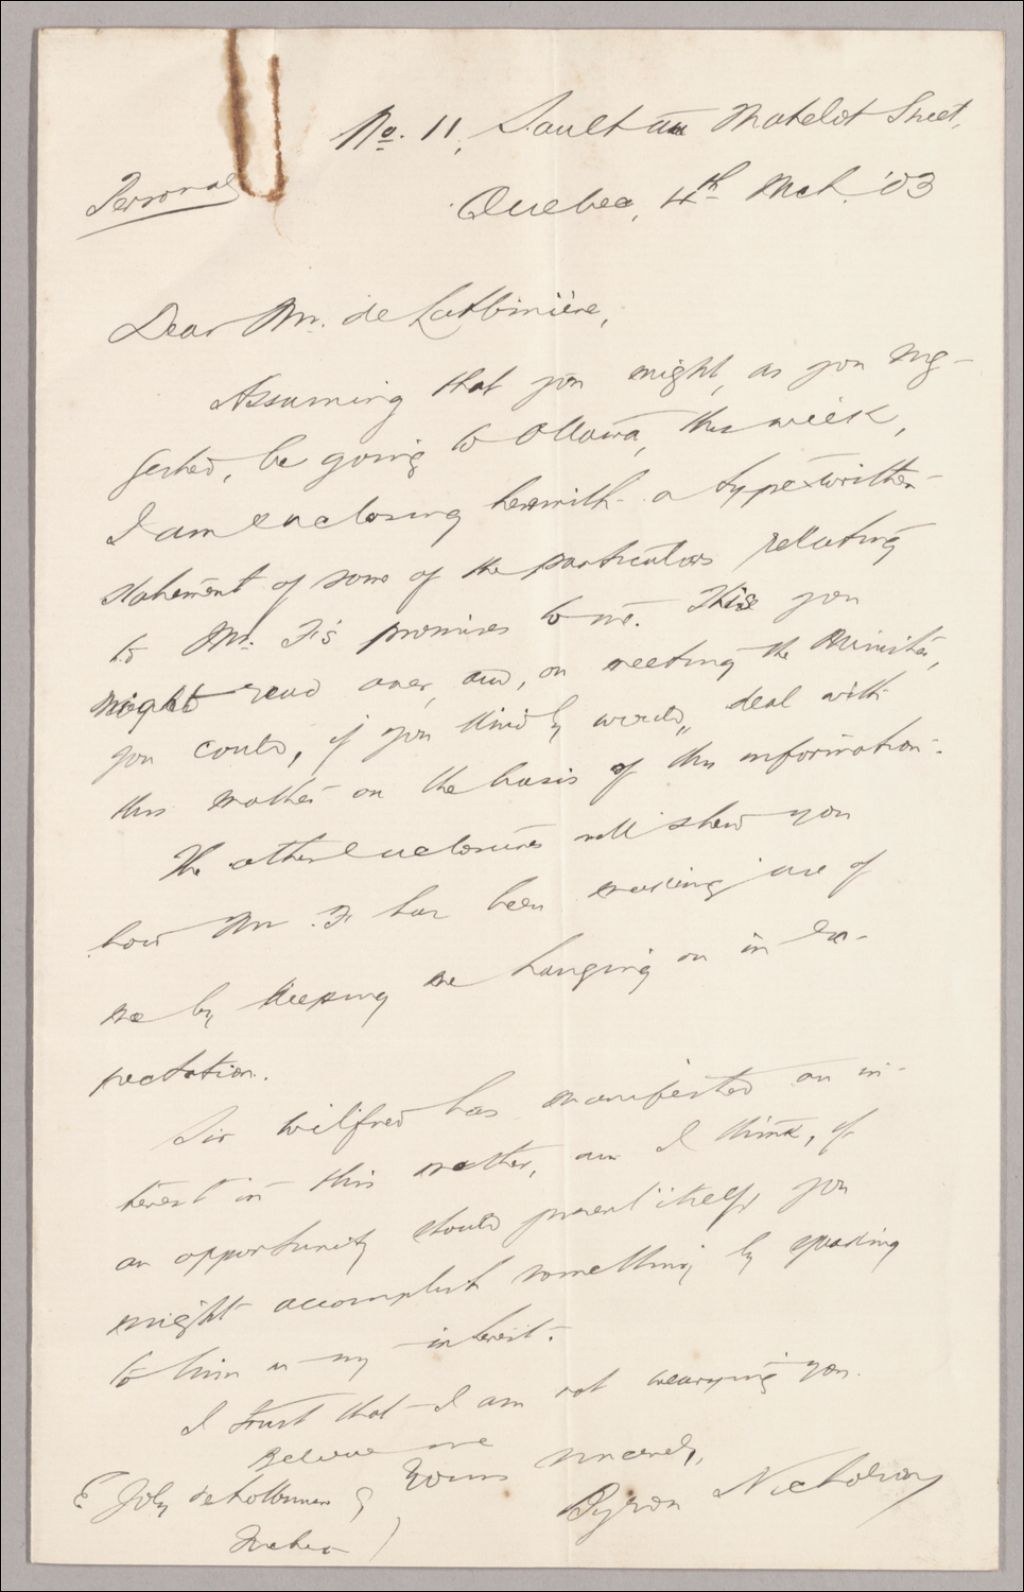 No. 11, Sault au Matelot Street,
Personal
Quebec, 4th Mch. '03
Dear Mr. de Lotbinière,
Assuming that you might, as you sug-
gested, be going to Ottawa, this week,
I am enclosing herewith a type-written
statement of some of the particulars relating
to Mr. F's promises to me. This you
might read over, and, on meeting the Minister,
you could, if you kindly would, deal with
this matter on the basis of this information.
The other enclosures will shew you
how Mr. F has been making use of
me by keeping me hanging on in ex-
pectation.
Sir Wilfred has manifested an in-
terest in this matter, and I think, if
an opportunity should present itself, you
might accomplish something by speaking
to him in my interest.
I trust that I am not wearying you.
Believe me
Yours sincerely,
Byron Nicholson
E. Joly de Lotbiniere
Quebec